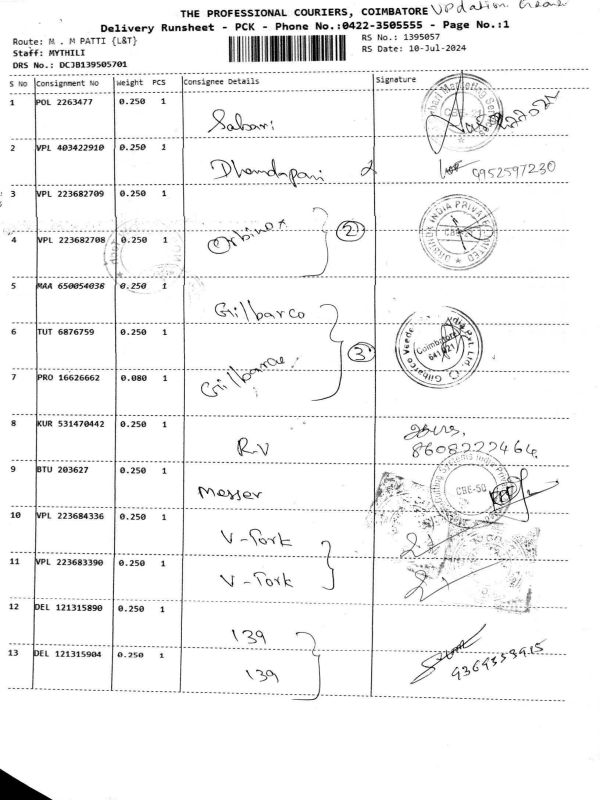 THE PROFESSIONAL COURIERS, COIMBATORE Updation
Delivery Runsheet - PCK - Phone No.:0422-3505555 - Page No.:1
Route: M . M PATTI {L&T}
RS No.: 1395057
Staff: MYTHILI
RS Date: 10-Jul-2024
DRS No.: DCJB139505701
S No Consignment No Weight PCS Consignee Details Signature
1 POL 2263477 0.250 1
Sabari
2 VPL 403422910 0.250 1
Dhandapani 9952597230
3 VPL 223682709 0.250 1
Orbinox 2
ORBINOX INDIA PRIVATE LIMITED
4 VPL 223682708 0.250 1
5 MAA 650054038 0.250 1
Gilbarco
6 TUT 6876759 0.250 1
3
Gilbarco Veeder India Pvt. Ltd.
Coimbatore
641 021
7 PRO 16626662 0.080 1
Gilbarco
8 KUR 531470442 0.250 1
RV
8608222464
9 BTU 203627 0.250 1
Messer
CBE-50
10 VPL 223684336 0.250 1
V-Tork
11 VPL 223683390 0.250 1
V-Tork
12 DEL 121315890 0.250 1
139
13 DEL 121315904 0.250 1
139
9369353915